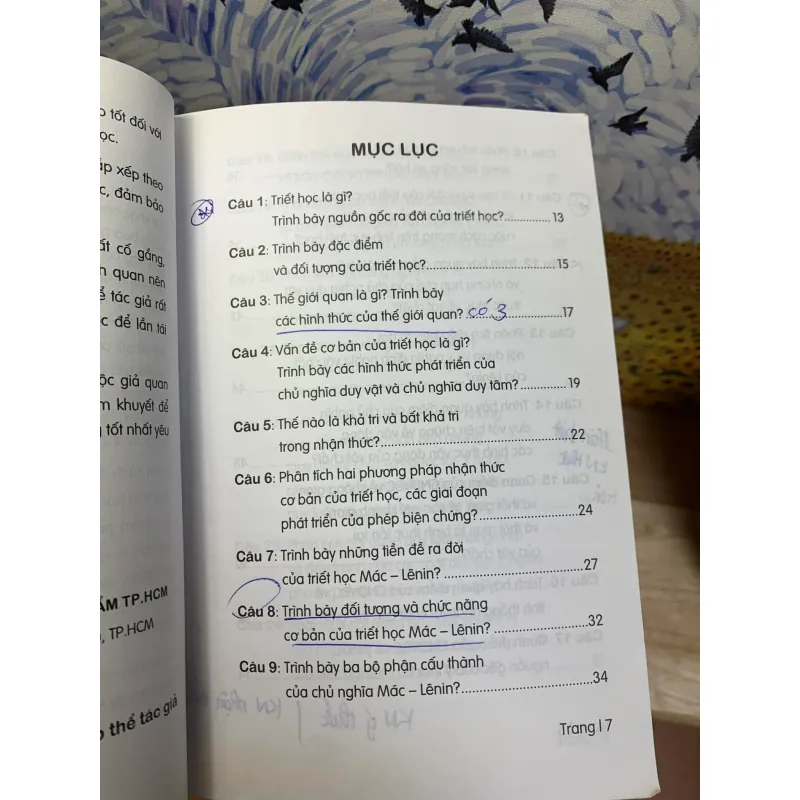 tốt đối với
ọc.
ắp xếp theo
c, đảm bảo
ất cố gắng,
quan nên
ể tác giả rất
c để lần tái
ộc giả quan
m khuyết để
tốt nhất yêu
ẤM TP.HCM
, TP.HCM
thể tác giả
MỤC LỤC
Câu 1: Triết học là gì?
Trình bày nguồn gốc ra đời của triết học?.............. 13
Câu 2: Trình bày đặc điểm
và đối tượng của triết học?................................ 15
Câu 3: Thế giới quan là gì? Trình bày
các hình thức của thế giới quan? có 3 ........................17
Câu 4: Vấn đề cơ bản của triết học là gì?
Trình bày các hình thức phát triển của
chủ nghĩa duy vật và chủ nghĩa duy tâm?............ 19
Câu 5: Thế nào là khả tri và bất khả tri
trong nhận thức?................................................22
Câu 6: Phân tích hai phương pháp nhận thức
cơ bản của triết học, các giai đoạn
phát triển của phép biện chứng?.........................24
Câu 7: Trình bày những tiền đề ra đời
của triết học Mác – Lênin? ..................................27
Câu 8: Trình bày đối tượng và chức năng
cơ bản của triết học Mác – Lênin? ........................32
Câu 9: Trình bày ba bộ phận cấu thành
của chủ nghĩa Mác – Lênin?................................34
Trang | 7